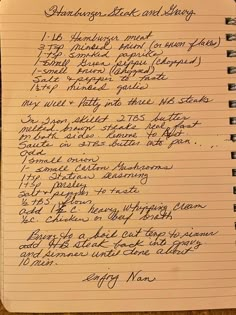 Hamburger Steak and Gravy
1-lb Hamburger meat
3 Tsp minced onion (or onion flakes)
1 Tsp smoked paprika
1-small green pepper (chopped)
1-small onion (chopped)
Salt & pepper to taste
1 tsp minced garlic
Mix well & Patty into three HB steaks
In Iron skillet 2TBS butter
melted brown steaks real
on both sides. Remove to plate
Saute in 2TBS butter in pan...
add
1 small onion
1- small carton Mushrooms
1 tsp Italian seasoning
1 tsp Parsley
Salt & pepper to taste
TBS flour
add 1/2 C. heavy whipping cream
1/2c. Chicken or Beef broth
Bring to a boil cut temp to simmer
add HB steak back into gravy
and simmer until done about
10 min.
Enjoy Nan